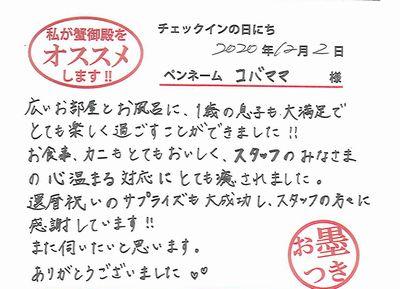 私が蟹御殿を
オススメ
します!!
チェックインの日にち
2020年12月2日
ペンネーム コバママ 様
広いお部屋とお風呂に、1歳の息子も大満足で
とても楽しく過ごすことができました!!
お食事、カニもとてもおいしく、スタッフのみなさま
の心温まる対応にとても癒されました。
還暦祝いのサプライズも大成功し、スタッフの方々に
感謝しています!!
また伺いたいと思います。
ありがとうございました♡♡
お墨
つき